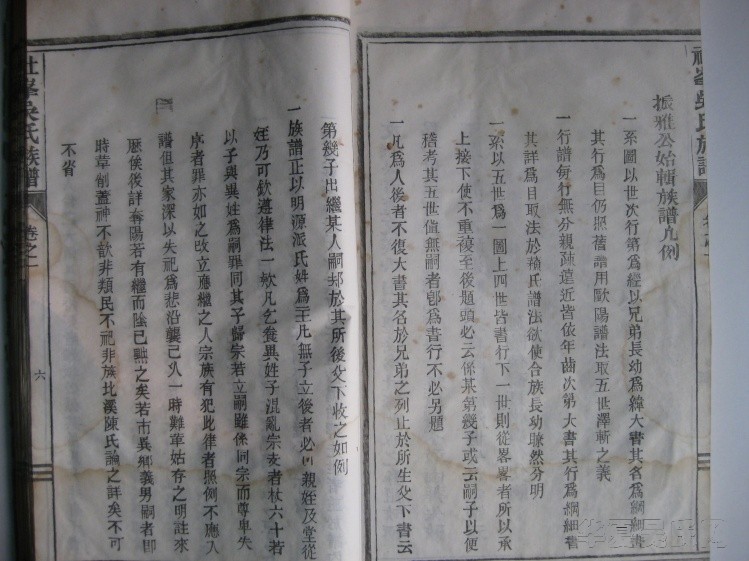 振雅公始輯族譜凡例
一系圖以世次行第爲經以兄弟長幼爲緯大書其名爲綱細書
其行爲目仍照舊譜用歐陽譜法取五世澤斬之義
一行譜每行無分親疎遠近皆依年齒次第大書其行爲綱細書
其詳爲目取法於賴氏譜法欲使合族長幼瞭然分明
一系以五世爲一圖上四世皆書行下一世則從畧畧者所以承
上接下使不重複至後題頭必云係某第幾子或云嗣子以便
稽考其五世値無嗣者卽爲書行不必另題
一凡爲人後者不復大書其名於兄弟之列止於所生父下書云
第幾子出繼某人嗣却於其所後父下收之如例
一族譜正以明源派氏姓爲主凡無子立後者必由親姪及堂從
姪乃可欽遵律法一欵凡乞養異姓子混亂宗支者杖六十若
以子與異姓爲嗣罪同其子歸宗若立嗣雖係同宗而尊卑失
序者罪亦如之改立應繼之人宗族有犯此律者照例不應入
譜但其家深以失祀爲悲沿襲已久一時難革姑存之明註來
歷俟後詳春陽若有繼而陰已黜之矣若市異鄉義男嗣者卽
時革削蓋神不歆非類民不祀非族北溪陳氏論之詳矣不可
不省
社峯吳氏族譜
卷之一
六
社峯吳氏族譜
卷之一